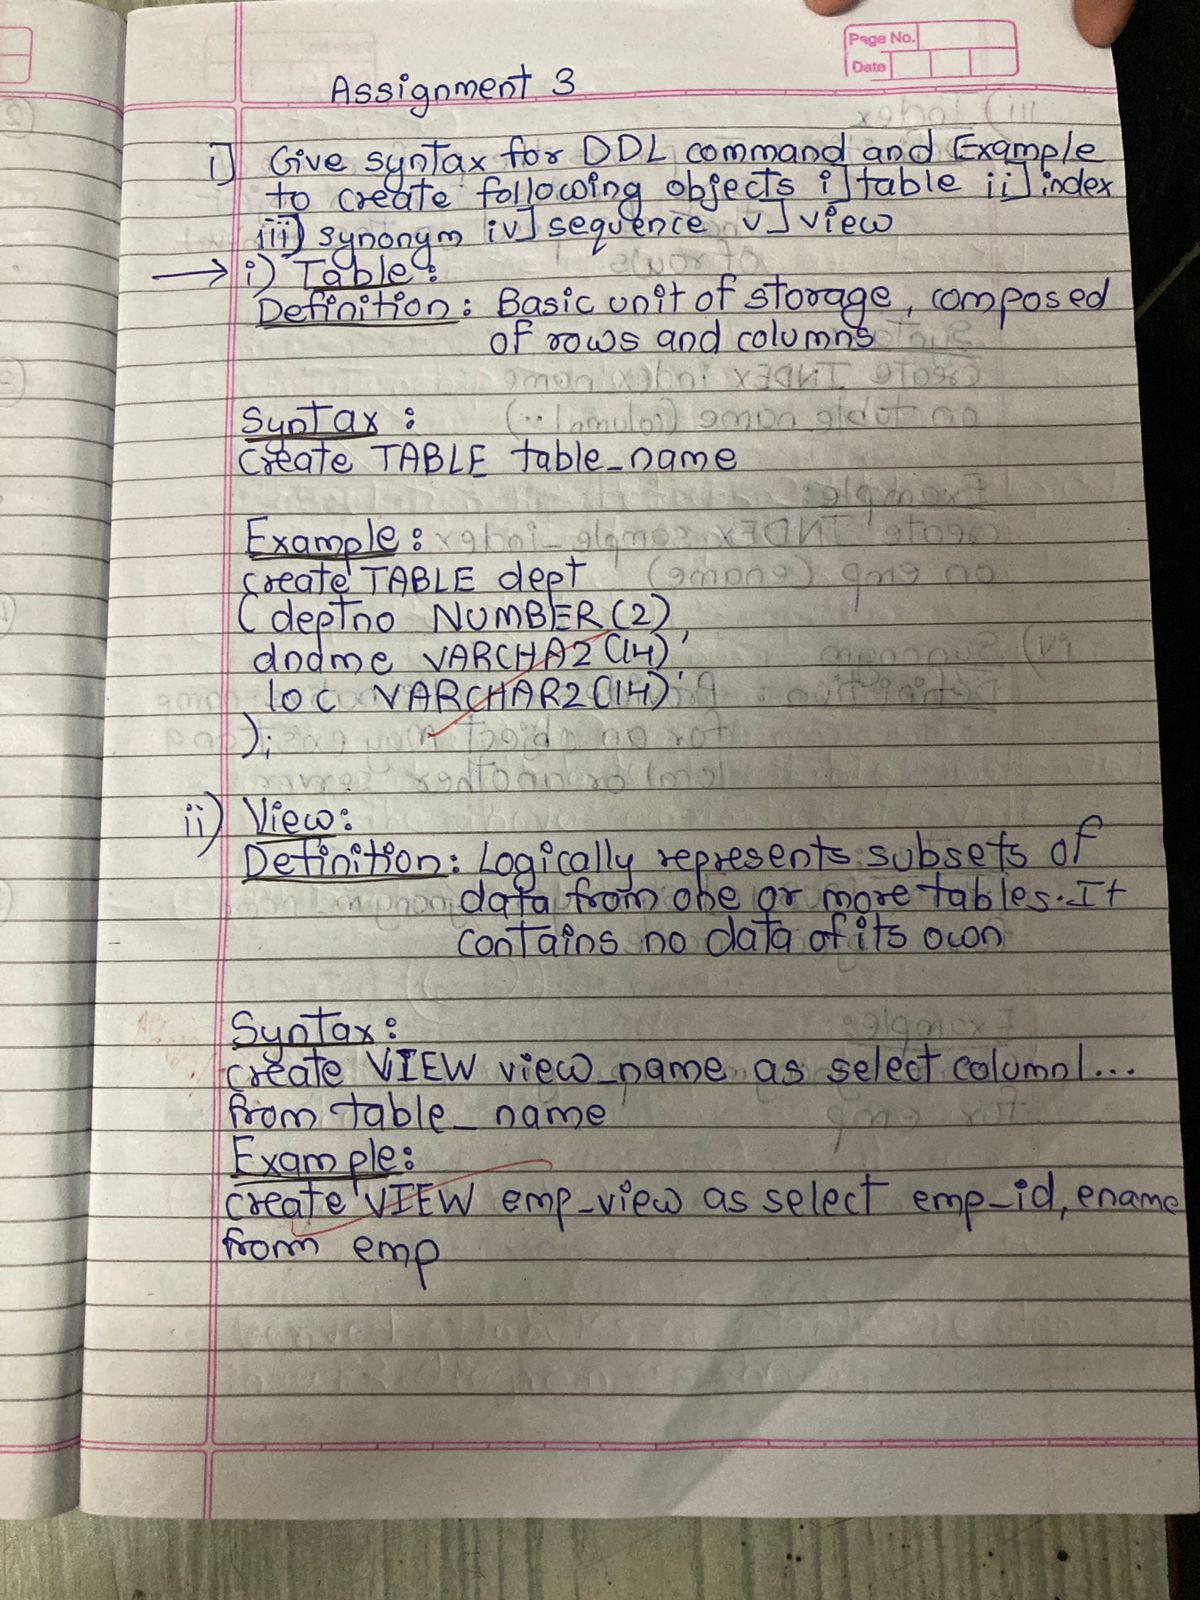 Page No.
Date
Assignment 3
i] Give syntax for DDL command and Example
to create following objects i] table ii] index
iii) synonym iv] sequence v] view
→ i) Table :
Definition : Basic unit of storage, composed
of rows and columns
Syntax :
create TABLE table_name
Example :
create TABLE dept
( deptno NUMBER (2),
dndme VARCHA2 (14),
loc VARCHAR2 (14)
);
ii) View :
Definition : Logically represents subsets of
data from one or more tables. It
contains no data of its own
Syntax :
create VIEW view_name as select column1...
from table_name
Example :
create VIEW emp_view as select emp_id, ename
from emp